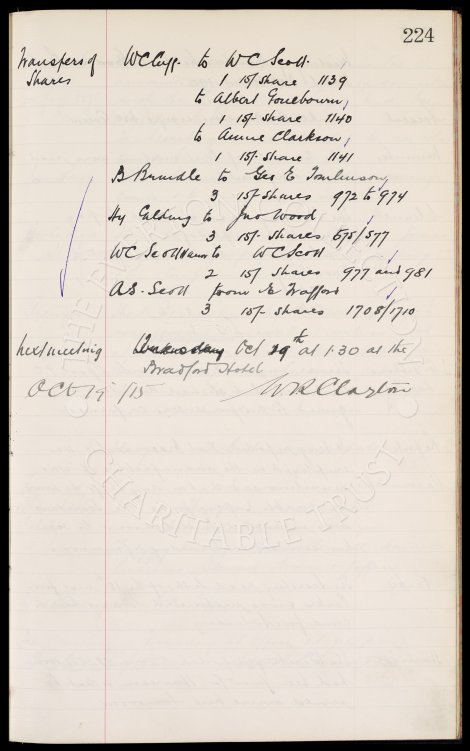 224
Transfers of
Shares
W C Cuff. to W C Scott.
1 15/ share 1139
to Albert Gouebourn,
1 15/- share 1140
to Annie Clarkson,
1 15/- share 1141
B Brundle to Geo E Tomlinson,
3 15/- shares 972 to 974
Hy Galding to Jno Wood,
3 15/- shares 575/577
W C Scott to W C Scott
2 15/ shares 977 and 981
A S. Scott from E Trafford
3 15/- shares 1708/1710
Next meeting
Oct 29th at 1.30 at the
Bradford Hotel
Oct 19/15
W R Clayton
CHARITABLE TRUST